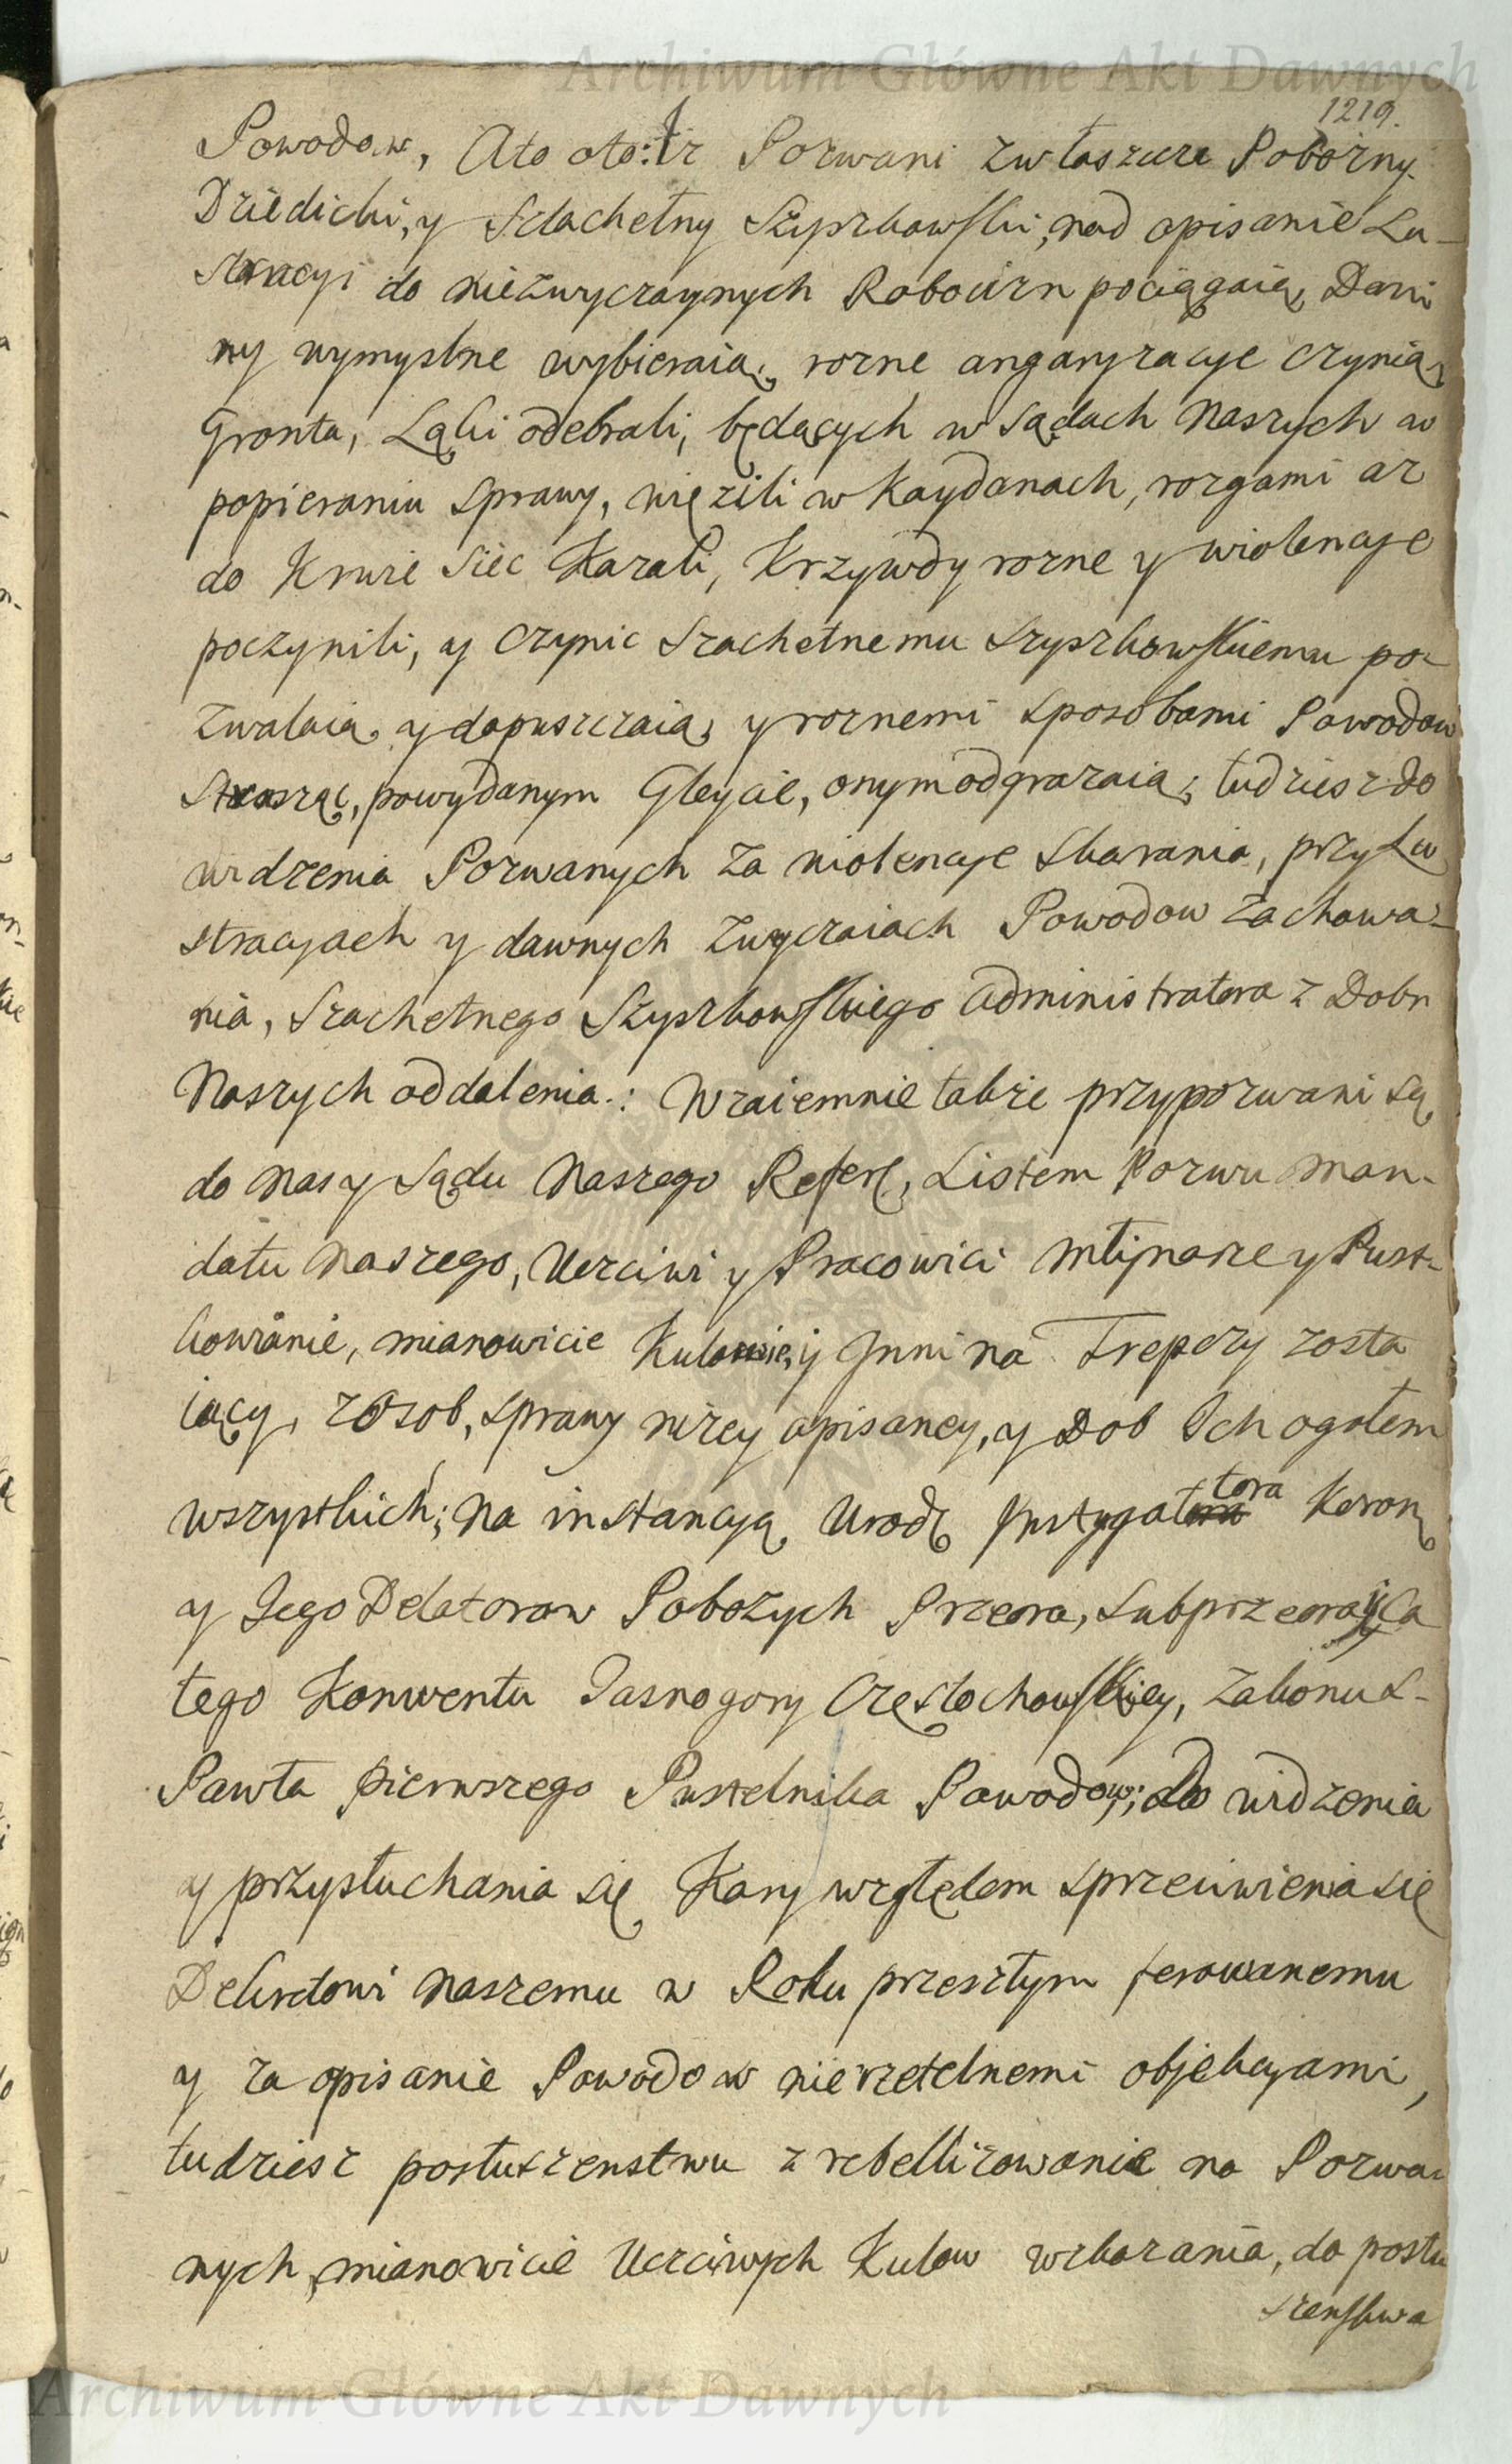 Archiwum Główne Akt Dawnych
1219.
Powodow, Ato oto: Iż Pozwani zwłaszcze Pobożny
Dziedicki, y Sclachetny Szyszkowski, nad opisanie Lu-
stracyi do niezwyczaynych Robocizn pociągaią, Dani
ny wymyslne wybieraią, rozne angaryzacye czynią,
Gronta, Ląki odebrali, będących w Sądach Naszych w
popieraniu Sprawy, więzili w Kaydanach, rozgami az
do Krwie Siec Kazali, Krzywdy rozne y wiolencye
poczynili, y czynic Szachetnemu Szyszkowskiemu po-
zwalaią, y dopuszczaią, y roznemi Sposobami Powodow
Strasząc, powydanym Gleycie, onym odgrazaią, tudziesz do
widzenia Pozwanych za wiolencye Skarania, przy Lu
stracyach y dawnych Zwyczaiach Powodow zachowa-
nia, Szachetnego Szyszkowskiego Administratora z Dobr
Naszych oddalenia.: Wzaiemnie także przypozwani są
do Nas y Sądu Naszego Refer, Listem Pozwu Man-
datu Naszego, Uczciwi y Pracowici Młynarze y Pust-
kowianie, mianowicie Kulowie, y Inni na Trepczy zosta
iący, z Osob, Sprawy niżey opisaney, y Dob Ich ogołem
wszystkich; Na instancyą Urodz Instygatora tora Koron
y Jego Delatorow Pobożych Przeora, Subprzeora y Ca
łego Konwentu Jasnogory Częstochowskiey, Zakonu S-
Pawła pierwszego Pustelnika Powodow; do widzenia
y przysłuchania się Kary względem Sprzeciwienia się
Dekretowi Naszemu w Roku przeszłym ferowanemu
y za opisanie Powodow nierzetelnemi objekcyami,
tudziesz posłuszenstwu zrebellizowanie na Pozwa-
nych, mianowicie Uczciwych Kulow wskazania, do posłu
szenstwa
Archiwum Główne Akt Dawnych